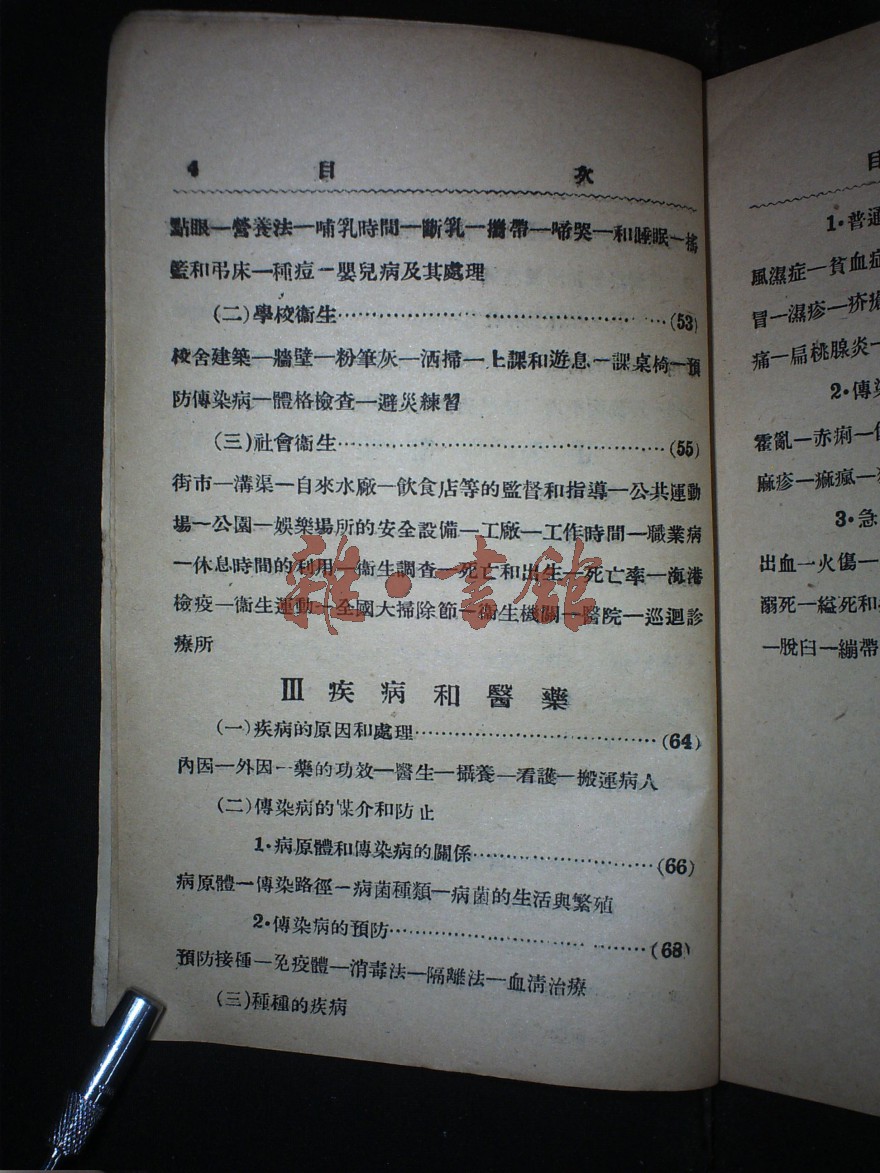 4 目 次
點眼—營養法—哺乳時間—斷乳—攜帶—啼哭—和睡眠—搖
籃和弔床—種痘—嬰兒病及其處理
(二)學校衞生……………………………(53)
校舍建築—牆壁—粉筆灰—洒掃—上課和遊息—課桌椅—預
防傳染病—體格檢查—避災練習
(三)社會衞生……………………………(55)
街市—溝渠—自來水廠—飲食店等的監督和指導—公共運動
場—公園—娛樂場所的安全設備—工廠—工作時間—職業病
—休息時間的利用—衞生調查—死亡和出生—死亡率—海港
檢疫—衞生運動—全國大掃除節—衞生機關—醫院—巡迴診
療所
III 疾病和醫藥
(一)疾病的原因和處理……………………(64)
內因—外因—藥的功效—醫生—攝養—看護—搬運病人
(二)傳染病的媒介和防止
1·病原體和傳染病的關係………………(66)
病原體—傳染路徑—病菌種類—病菌的生活與繁殖
2·傳染病的預防………………………(68)
預防接種—免疫體—消毒法—隔離法—血清治療
(三)種種的疾病
雜·書館
目
1·普通
風濕症—貧血症
冒—濕疹—疥瘡
痛—扁桃腺炎—
2·傳
霍亂—赤痢—
麻疹—痲瘋—
3·急
出血—火傷—
溺死—縊死和
—脫臼—繃帶